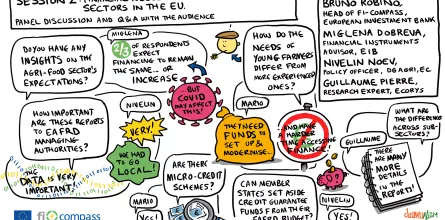 SECTORS IN THE EU.
PANEL DISCUSSION AND Q&A WITH THE AUDIENCE
BRUNO ROBINO,
HEAD OF FI-COMPASS,
EUROPEAN INVESTMENT BANK
MIGLENA DOBREVA,
FINANCIAL INSTRUMENTS
ADVISOR, EIB
NIVELIN NOEV,
POLICY OFFICER, DG AGRI, EC
GUILLAUME PIERRE,
RESEARCH EXPERT, ECORYS
DO YOU HAVE ANY
INSIGHTS ON THE
AGRI-FOOD SECTOR'S
EXPECTATIONS?
MIGLENA
2/3 OF RESPONDENTS
EXPECT
FINANCING TO REMAIN
THE SAME... OR
INCREASE
BUT
COVID
MAY AFFECT
THIS!
HOW DO THE
NEEDS OF
YOUNG FARMERS
DIFFER FROM
MORE EXPERIENCED
ONES?
MARIO
THEY NEED
FUNDS TO
SET UP &
MODERNISE.
AND HAVE
A HARDER
TIME ACCESSING
FINANCE!
HOW IMPORTANT
ARE THESE REPORTS
TO EAFRD
MANAGING
AUTHORITIES?
NIVELIN
VERY!
WE HAD
TO GO
LOCAL!
THE
DATA IS VERY
IMPORTANT!
ARE THERE
MICRO-CREDIT
SCHEMES?
MARIO
YES!
CAN MEMBER
STATES SET ASIDE
CREDIT GUARANTEE
FUNDS FROM THEIR
EAFRD BUDGET?
NIVELIN
WHAT ARE
THE
DIFFERENCES
ACROSS SUB-
SECTORS?
GUILLAUME
THERE
ARE MANY
MORE
DETAILS
IN THE
REPORT!
fi compass